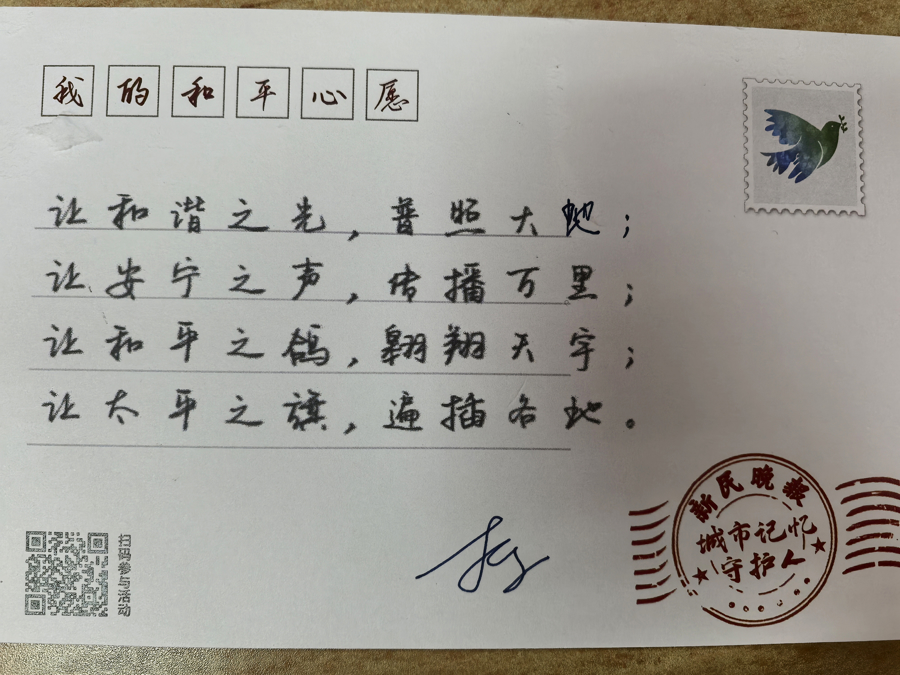 我的和平心愿
让和谐之光，普照大地；
让安宁之声，传播万里；
让和平之鸽，翱翔天宇；
让太平之旗，遍插各地。
扫码参与活动
新民晚报
城市记忆
守护人